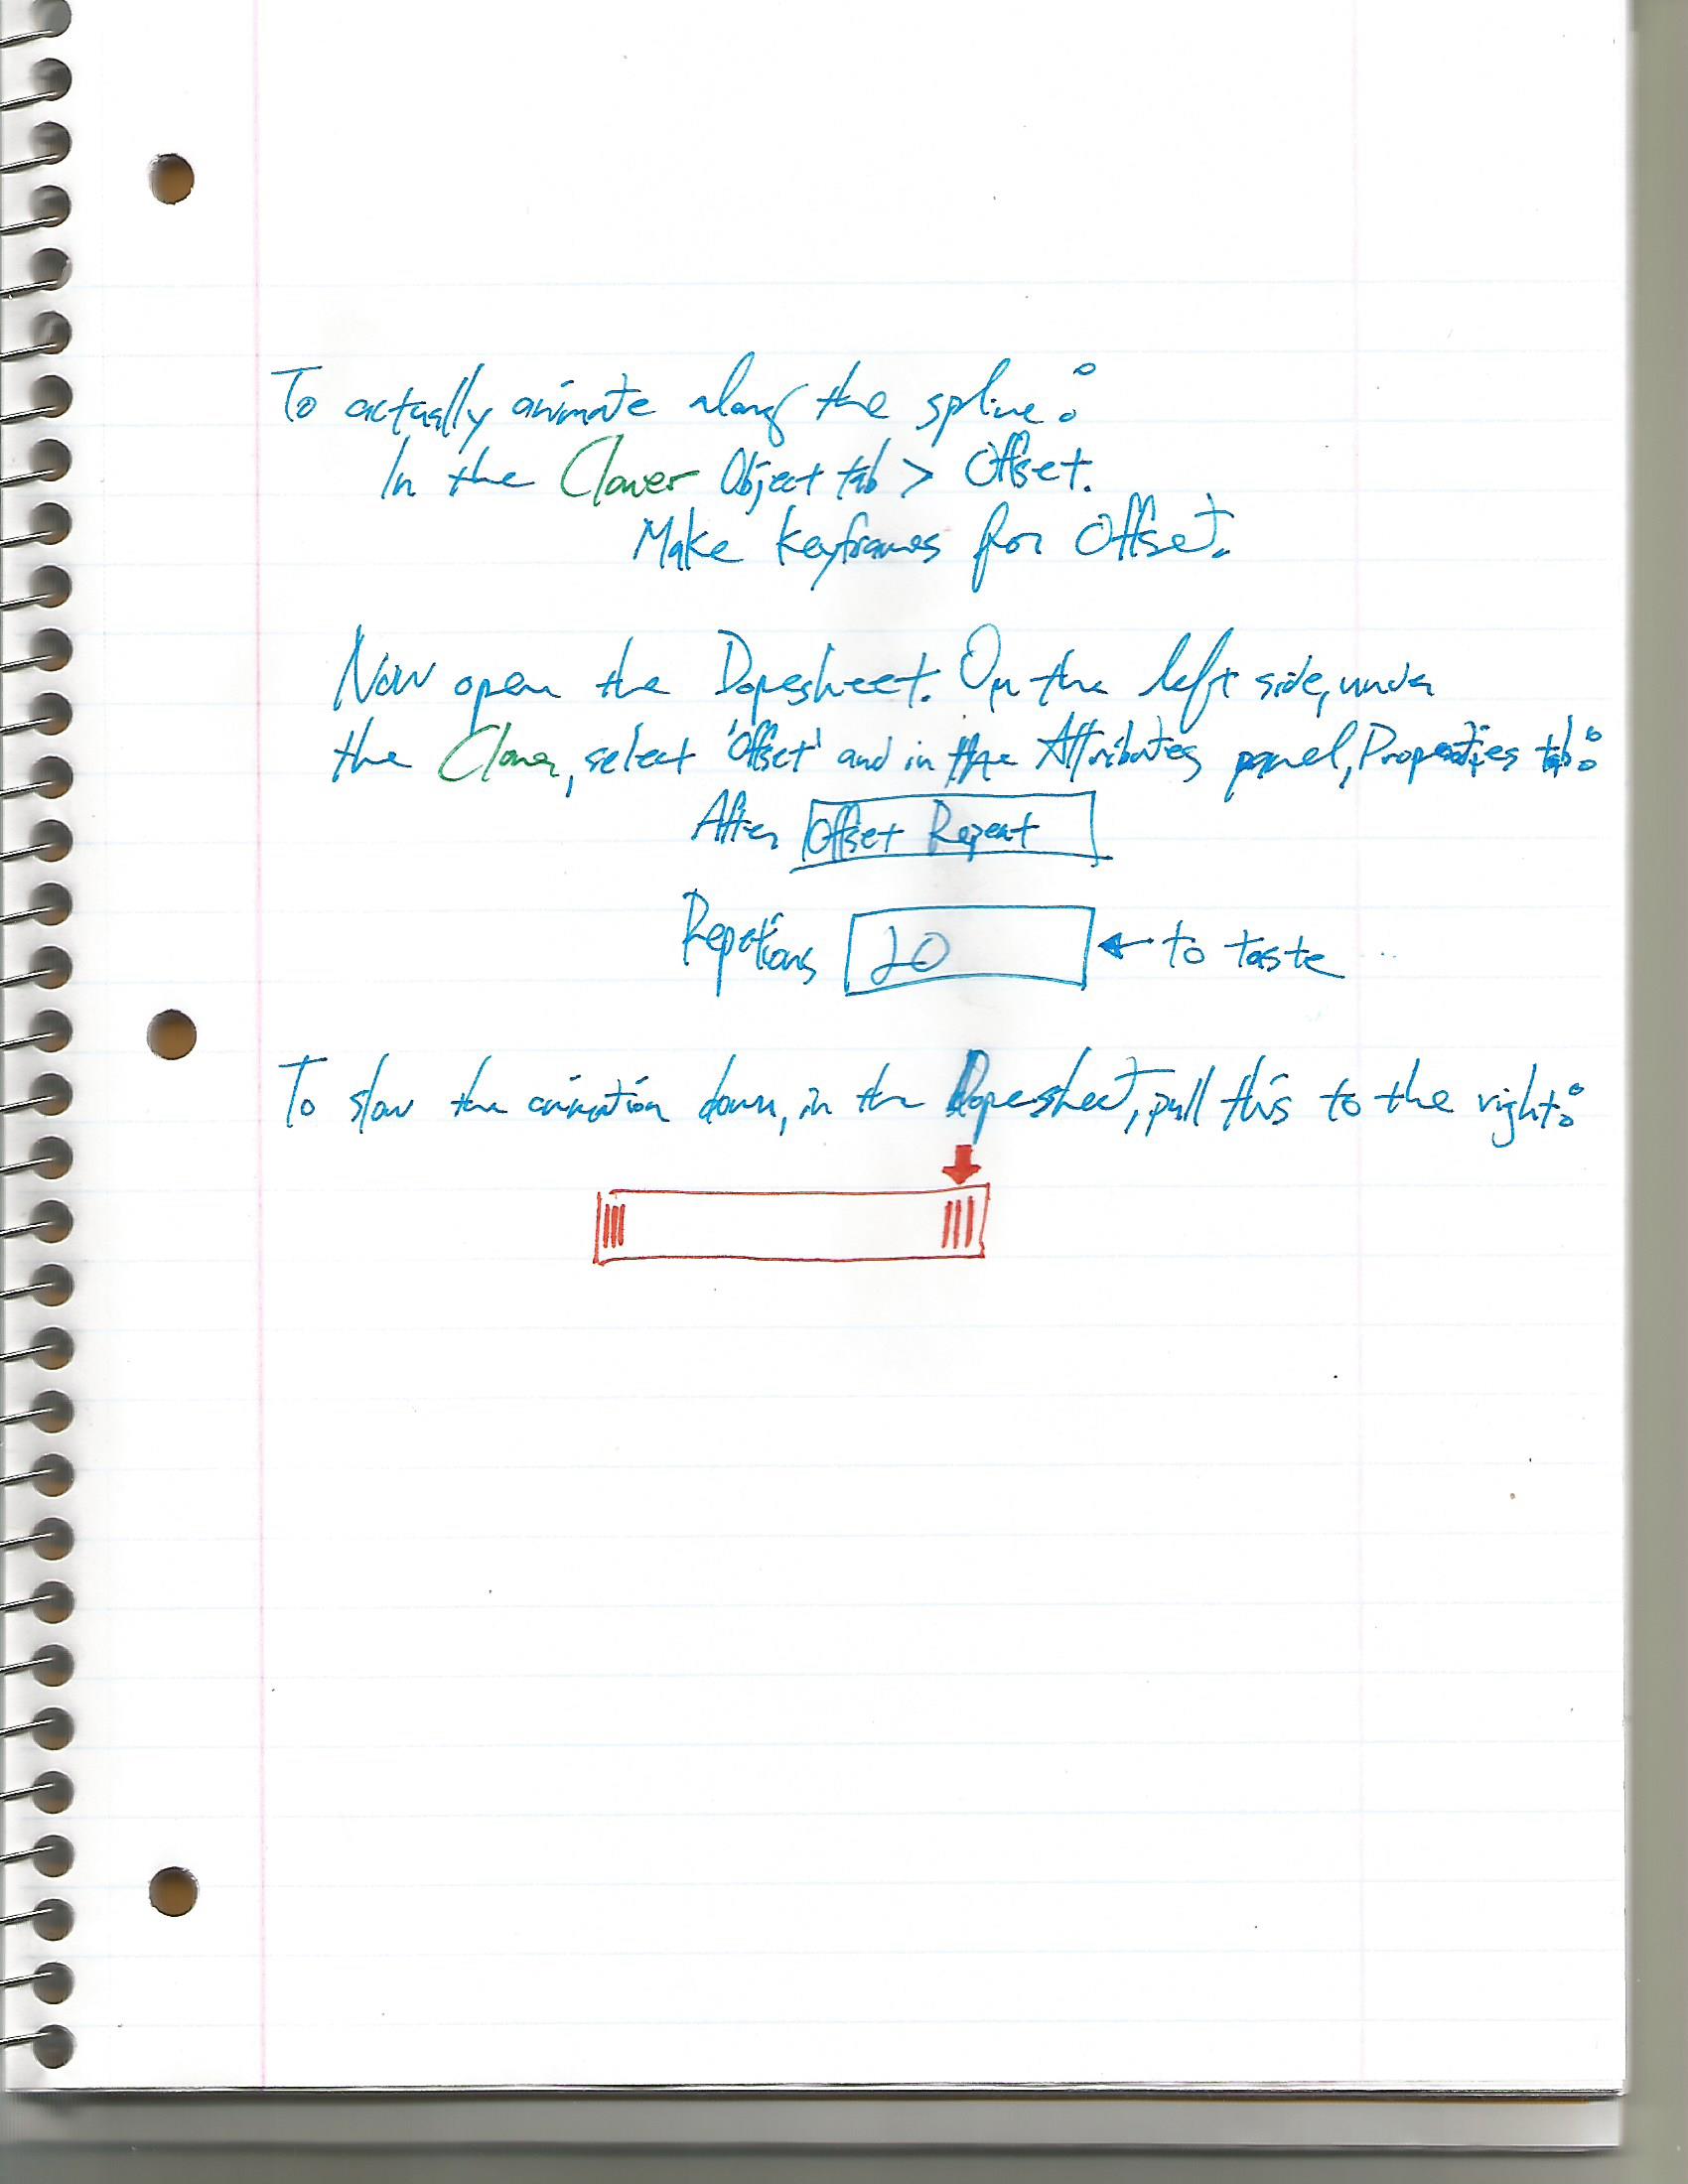 To actually animate along the spline:
In the Cloner Object tab > Offset.
Make keyframes for Offset.
Now open the Dopesheet. On the left side, under
the Cloner, select 'Offset' and in the Attributes panel, Properties tab:
After Offset Repeat
Repetions 20 ← to taste
To slow the animation down, in the Dopesheet, pull this to the right: